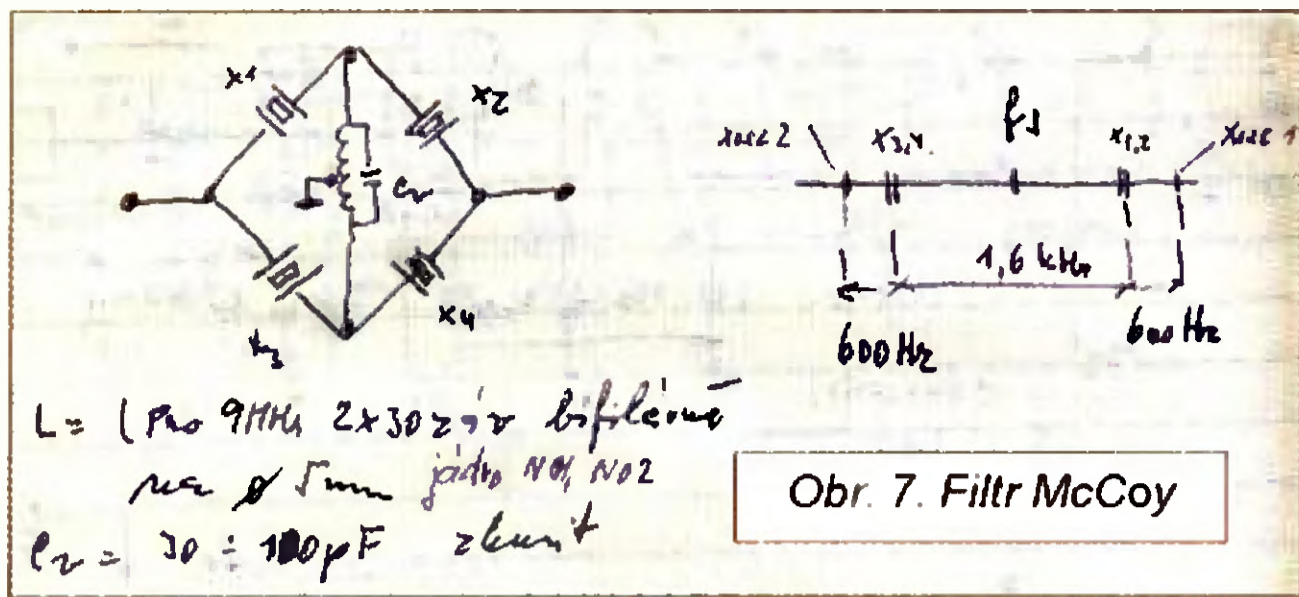 x1
x2
x3
x4
Cv
xosc 2
x3,4.
fs
x1,2
xosc 1
1,6 kHz
600Hz
600Hz
L= (Pro 9MHz 2x30 záv bifilárně
na ø 5mm jádro N01, N02
Cv = 30 ÷ 100pF zkusit
Obr. 7. Filtr McCoy